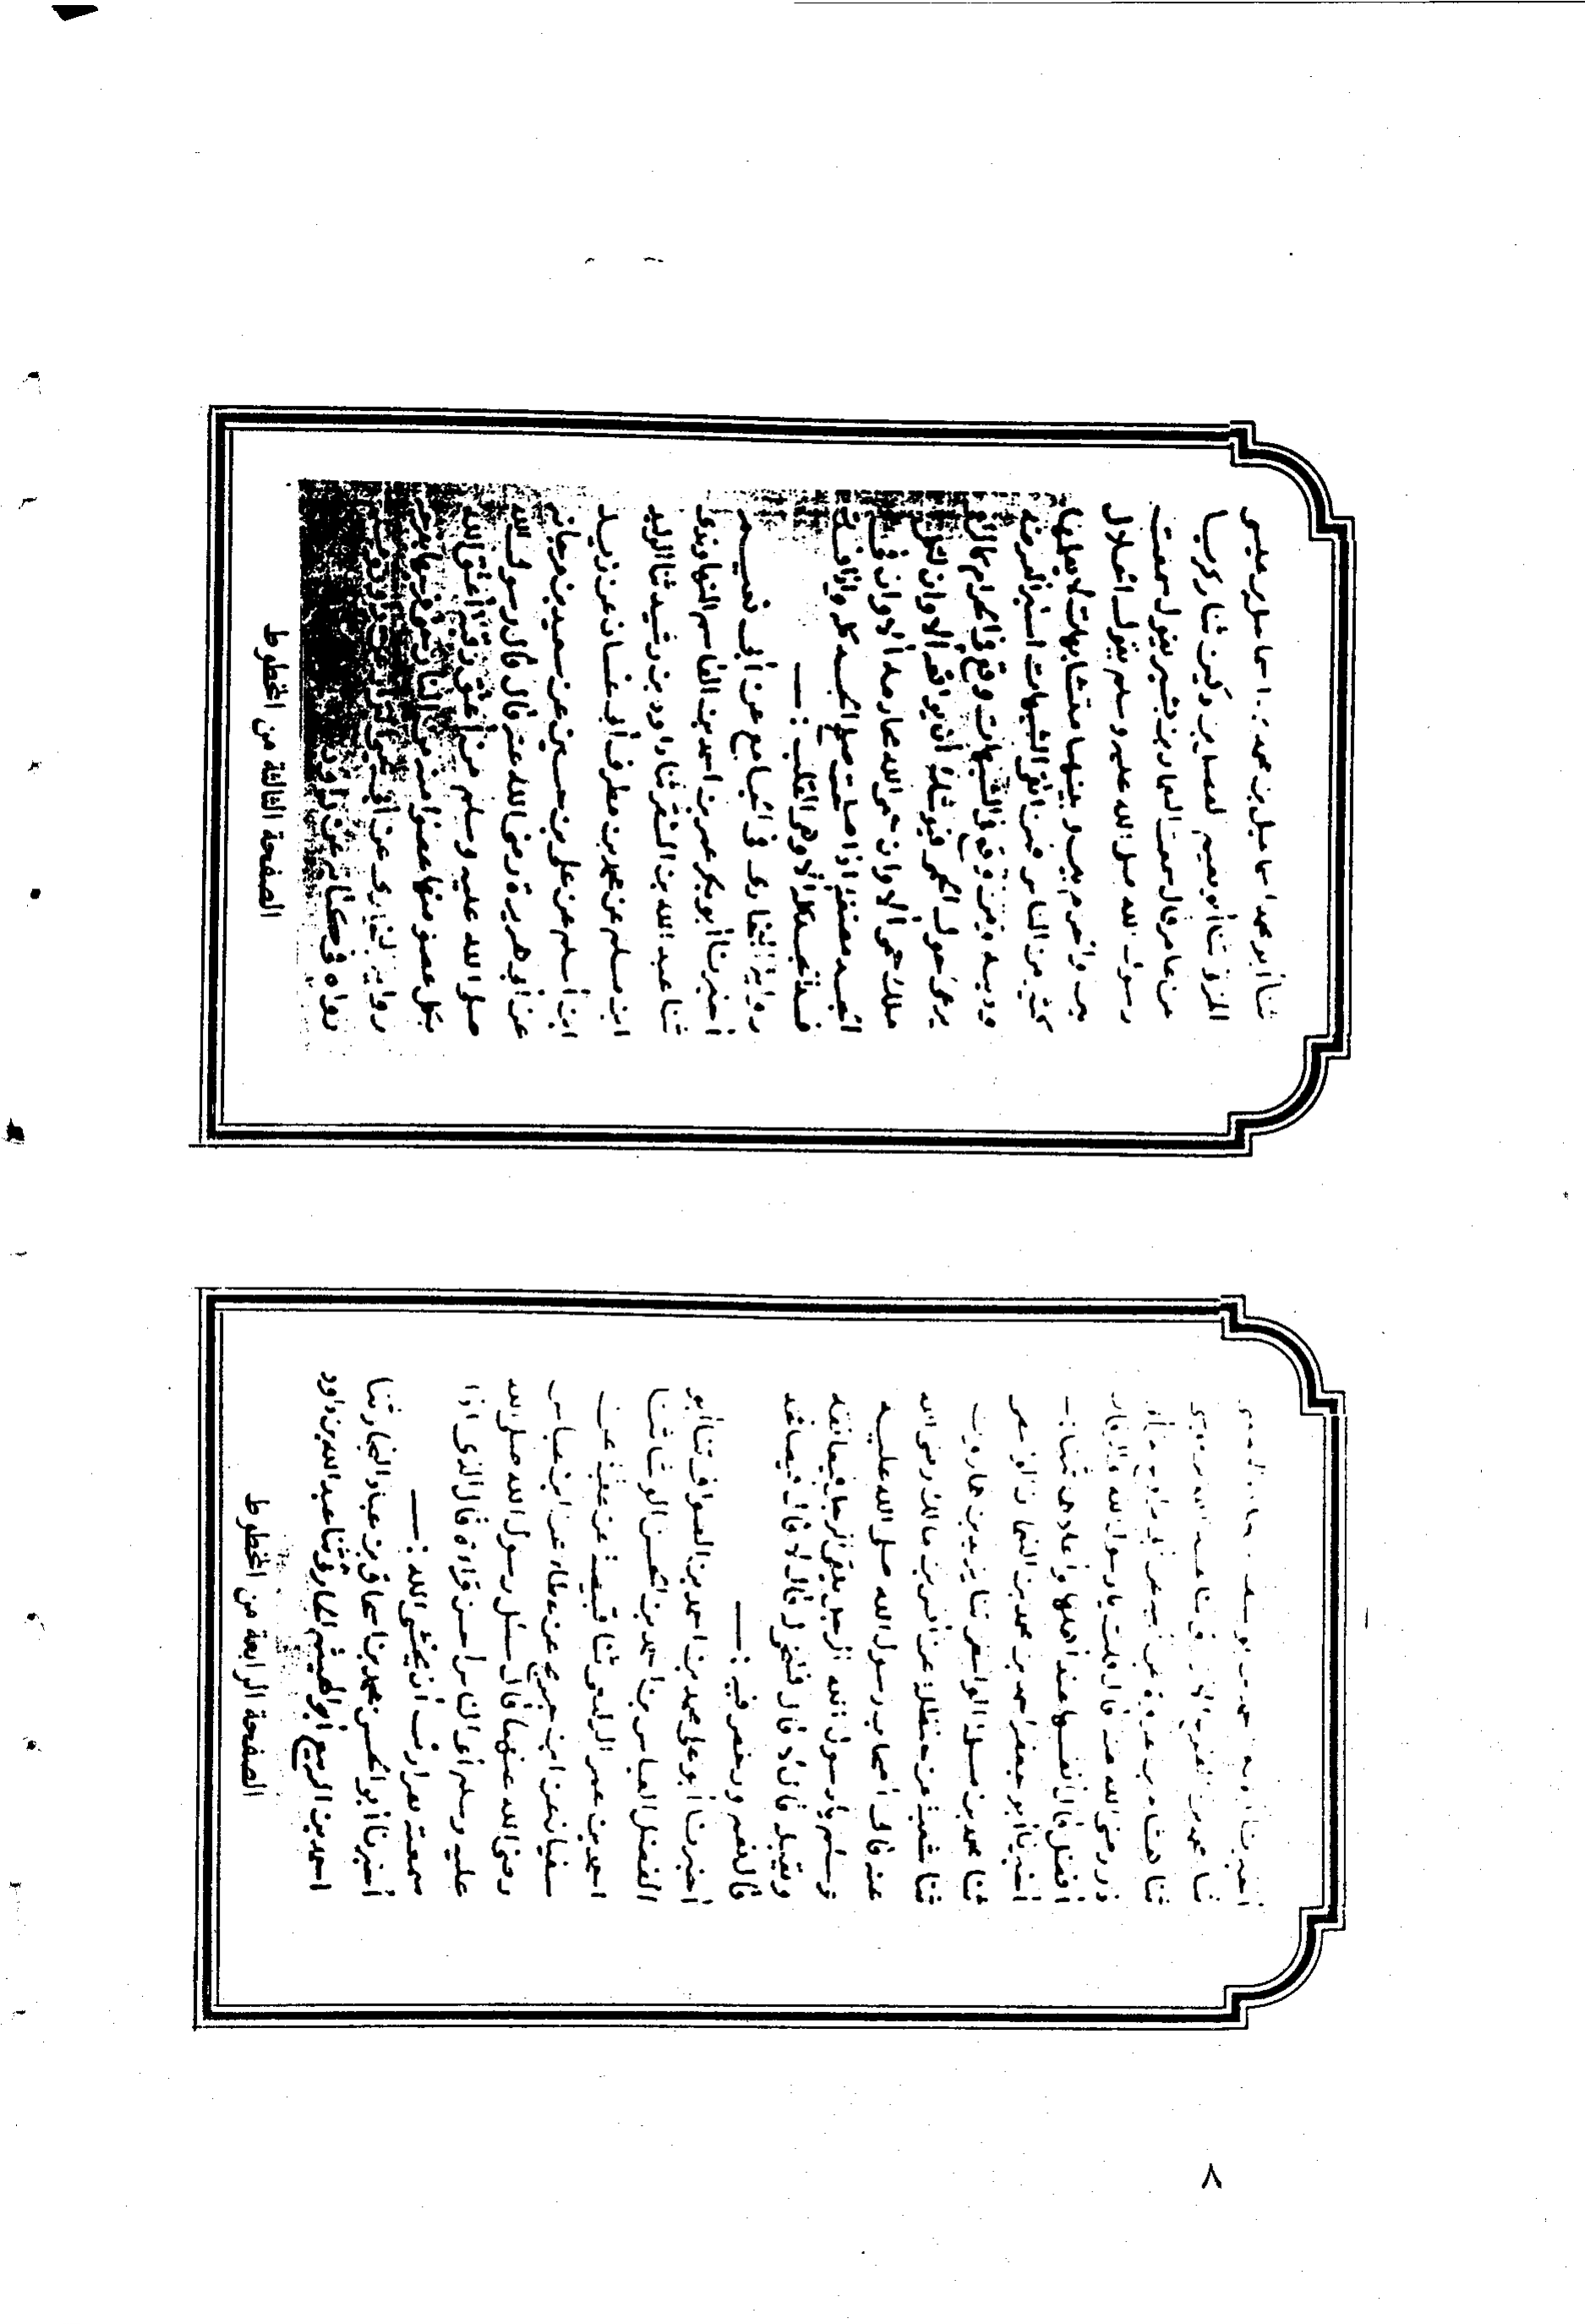 ثنا أبو محمد اسماعيل بن محمد بن اسماعيل بن على
المزنى ثنا أبو نعيم الفضل بن دكين ثنا زكريا
عن عامر قال سمعت النعمان بن بشير يقول سمعت
رسول الله صلى الله عليه وسلم يقول الحلال
بين والحرام بين وبينهما متشابهات لا يعلمها
كثير من الناس فمن اتقى الشبهات استبرأ لعرضه
ودينه ومن وقع فى الشبهات وقع فى الحرام كالراعى
يرعى حول الحمى فيوشك أن يواقعه ألا وان لكل
ملك حمى ألا وان حمى الله محارمه ألا وان فى
الجسد مضغة إذا صلحت صلح الجسد كله وإذا فسدت
فسد الجسد كله ألا وهى القلب :ـــ
رواية البخارى فى الجامع عن أبى نعيم
أخبرنا أبو بكر عمر بن احمد بن القاسم النهاوندى
ثنا عبد الله بن النضر ثنا داود بن رشيد ثنا الوليد
ابن مسلم عن محمد بن مطرف أبى غسان عن زيد
ابن أسلم عن على بن حسين عن سعيد بن مرجانه
عن أبى هريرة رضى الله عنه قال قال رسول الله
صلى الله عليه وسلم من أعتق رقبة أعتق الله
بكل عضو منها عضوا منه من النار حتى فرجه بفرجه
رواه البخارى عن
رواه فى كتابه عن داود
الصفحة الثالثة من المخطوط
أخبرنا
ثنا محمد بن
ثنا هشام بن عروة عن أبيه عن أبى مراوح عن أبى
ذر رضى الله عنه قال قلت يا رسول الله أى الرقاب
أفضل قال أنفسها عند أهلها وأغلاها ثمنا :ـ
أخبرنا أبو جعفر احمد بن محمد بن
ثنا محمد بن مسلمة الواسطى ثنا يزيد بن هارون
ثنا شعبة عن حنظلة عن أنس بن مالك رضى الله
عنه قال قال اصحاب رسول الله صلى الله عليه
وسلم يا رسول الله الرجل يلقى الرجل فيعانقه
ويقبله قال لا قال فينحنى له قال لا قال فيصافحه
قال نعم ورخص فيه :ـــ
أخبرنا أبو على محمد بن احمد بن الصواف ثنا أبو
الفضل العباس بن احمد بن الحسن الوشا ثنا
احمد بن عمر الوكيعى ثنا قبيصة بن عقبة عن
سفيان عن ابن جريج عن عطاء عن ابن عباس
رضى الله عنهما قال سئل رسول الله صلى الله
عليه وسلم أى الناس احسن قراءة قال الذى اذا
سمعته يقرأ رأيت أنه يخشى الله :ـــ
أخبرنا أبو الحسن محمد بن اسحاق بن عباد التمار ثنا
احمد بن الربيع أبو الهيثم المحاربى ثنا عبد الله بن داود
الصفحة الرابعة من المخطوط
٨